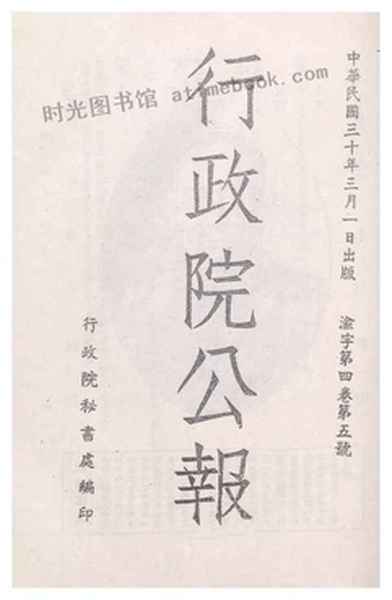 中華民國三十年三月一日出版 渝字第四卷第五號
行政院公報
行政院秘書處編印
时光图书馆 atimebook.com